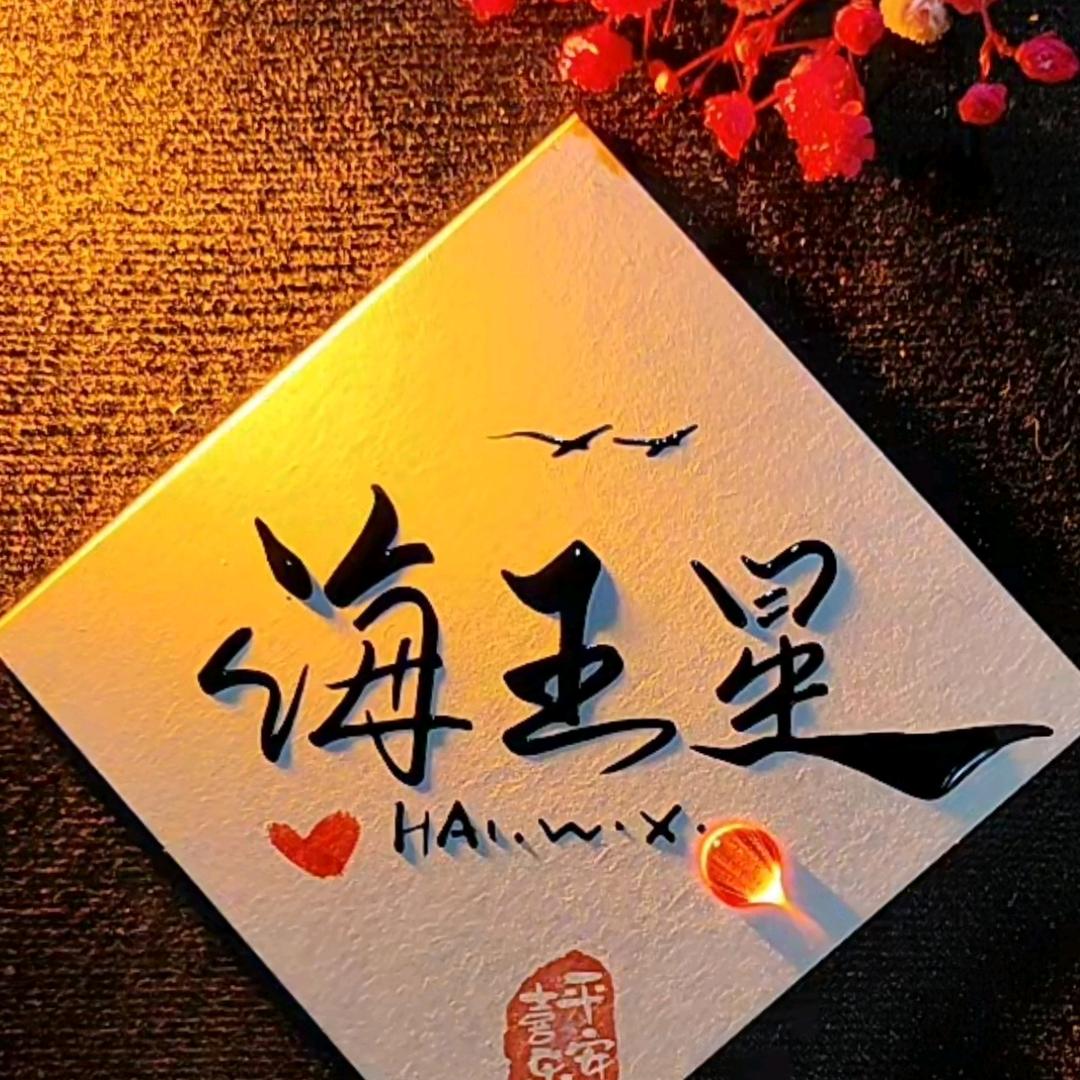 海王星
HAI.W.X.
平安
喜乐